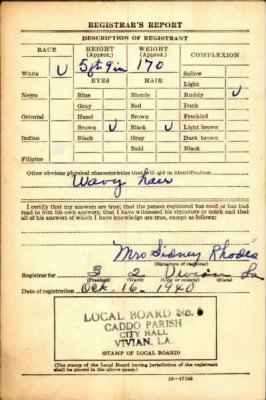 REGISTRAR'S REPORT
DESCRIPTION OF REGISTRANT
RACE HEIGHT (Approx.) WEIGHT (Approx.) COMPLEXION
White ✓ 5 ft 9 in 170 Sallow
EYES HAIR Light
Negro Blue Blonde Ruddy ✓
Gray Red Dark
Oriental Hazel Brown Freckled
Brown ✓ Black ✓ Light brown
Indian Black Gray Dark brown
Bald Black
Filipino
Other obvious physical characteristics that will aid in identification
Wavy hair
I certify that my answers are true; that the person registered has read or has had
read to him his own answers; that I have witnessed his signature or mark and that
all of his answers of which I have knowledge are true, except as follows:
Mrs Sidney Rhodes
(Signature of registrar)
Registrar for 3 2 Vivian La
(Precinct) (Ward) (City or county) (State)
Date of registration Oct. 16 - 1940
LOCAL BOARD No. 6
CADDO PARISH
CITY HALL
VIVIAN, LA.
(STAMP OF LOCAL BOARD)
(The stamp of the Local Board having jurisdiction of the registrant
shall be placed in the above space.)